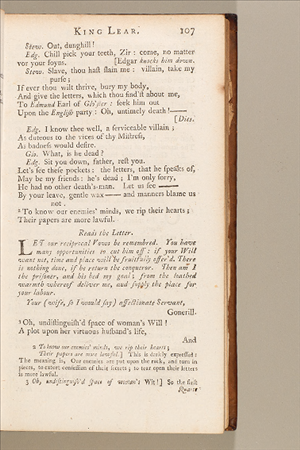 KING LEAR. 107
Stew. Out, dunghill!
Edg. Chill pick your teeth, Zir: come, no matter
vor your foyns. [Edgar knocks him down.
Stew. Slave, thou hast slain me: villain, take my
purse;
If ever thou wilt thrive, bury my body,
And give the letters, which thou find'st about me,
To Edmund Earl of Glo'ster: seek him out
Upon the English party: Oh, untimely death!——
[Dies.
Edg. I know thee well, a serviceable villain;
As duteous to the vices of thy Mistress,
As badness would desire.
Glo. What, is he dead?
Edg. Sit you down, father, rest you.
Let's see these pockets: the letters, that he speaks of,
May be my friends: he's dead; I'm only sorry,
He had no other death's-man. Let us see ——
By your leave, gentle wax —— and manners blame us
not.
2 To know our enemies' minds, we rip their hearts;
Their papers are more lawful.
Reads the Letter.
LET our reciprocal Vows be remembred. You have
many opportunities to cut him off: if your Will
want not, time and place will be fruitfully offer'd. There
is nothing done, if he return the conqueror. Then am I
the prisoner, and his bed my goal; from the loathed
warmth whereof deliver me, and supply the place for
your labour.
Your (wife, so I would say) affectionate Servant,
Gonerill.
3 Oh, undistinguish'd space of woman's Will!
A plot upon her virtuous husband's life,
And
2 To know our enemies' minds, we rip their hearts;
Their papers are more lawful.] This is darkly expressed:
The meaning is, Our enemies are put upon the rack, and torn in
pieces, to extort confession of their secrets; to tear open their letters
is more lawful.
3 Oh, undistinguish'd space of woman's Wit!] So the first
Quarto